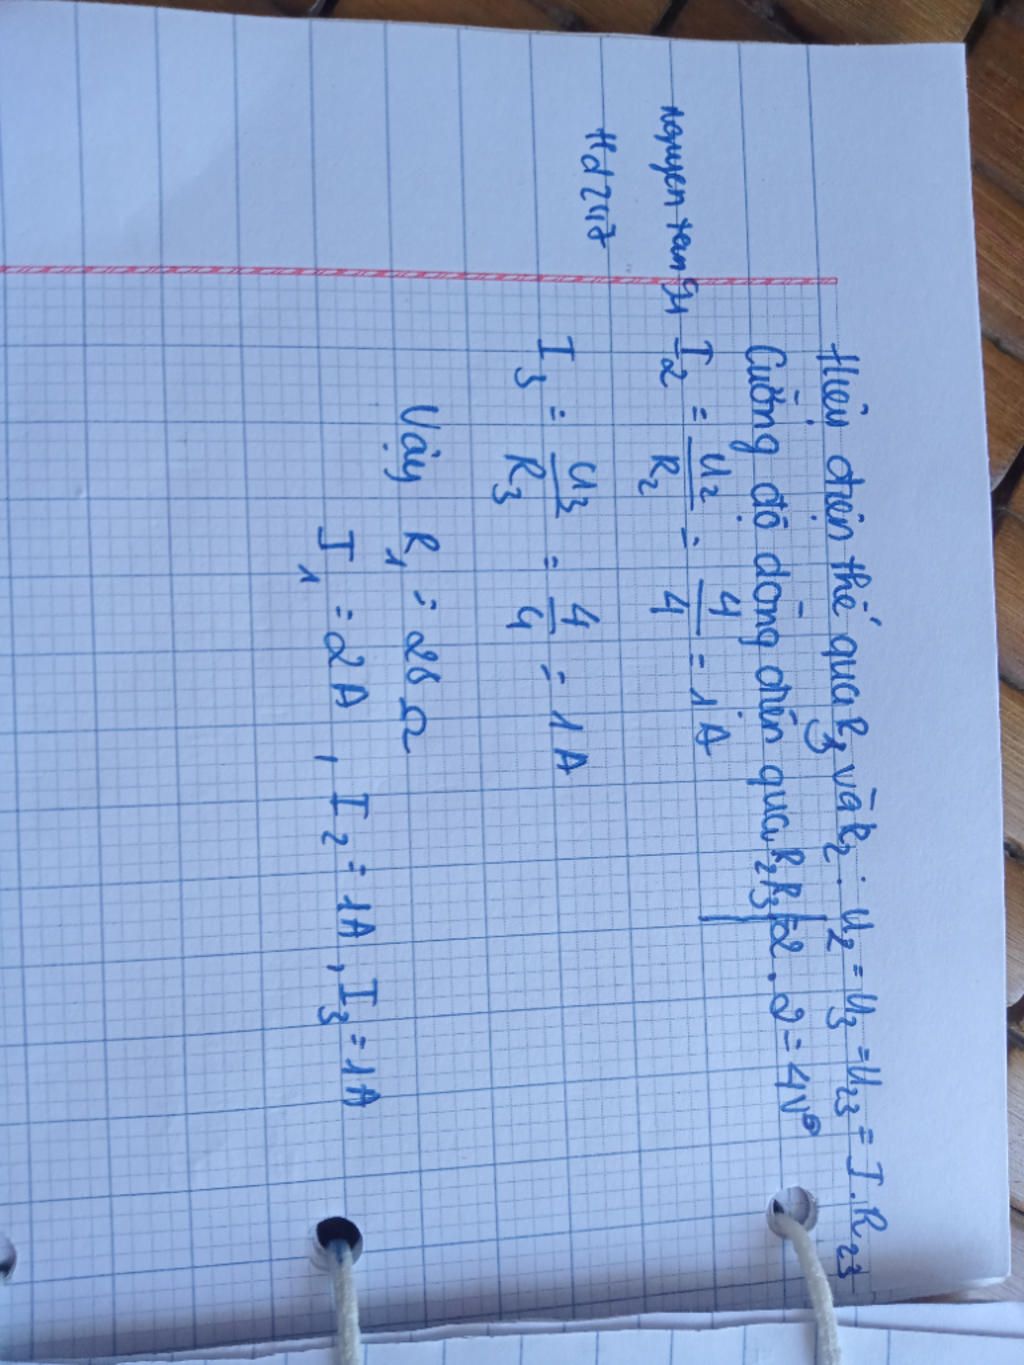 Hiệu điện thế qua R3 và R2: U2 = U3 = U23 = I.R23
= 2.2 = 4V
Cường độ dòng điện qua R2R3
nguyen tan
I2 = U2/R2 = 4/4 = 1A
Hdzut7
I3 = U3/R3 = 4/4 = 1A
Vậy R1 = 28 Ω
I1 = 2A, I2 = 1A, I3 = 1A